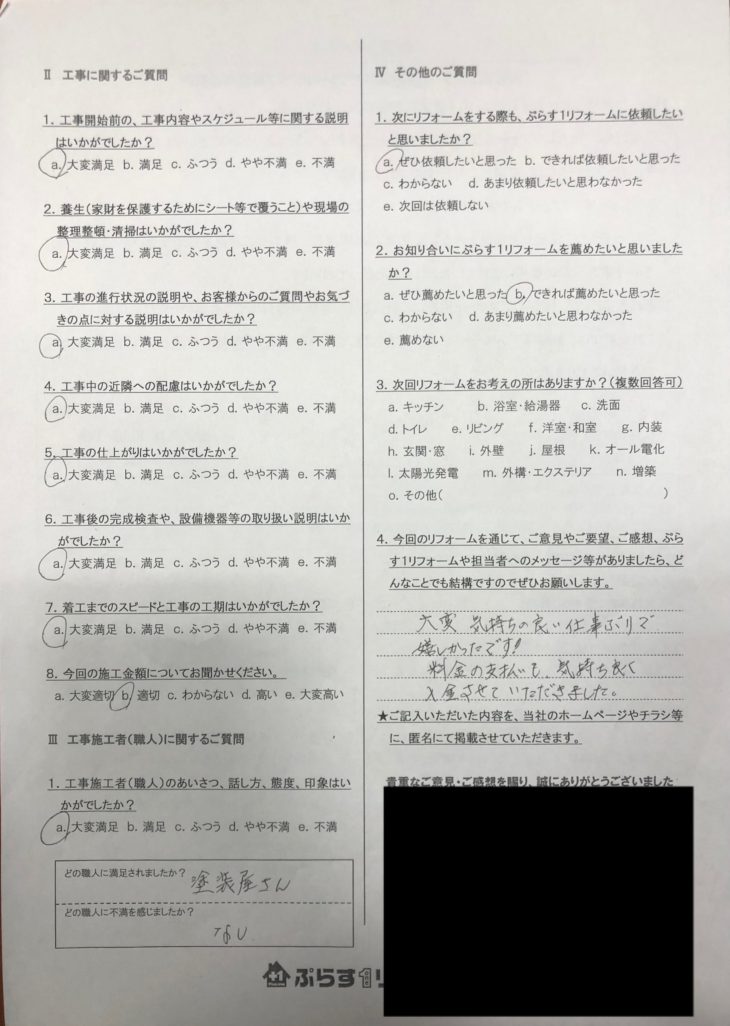 Ⅱ 工事に関するご質問
1. 工事開始前の、工事内容やスケジュール等に関する説明
はいかがでしたか？
a. 大変満足 b. 満足 c. ふつう d. やや不満 e. 不満
2. 養生(家財を保護するためにシート等で覆うこと)や現場の
整理整頓・清掃はいかがでしたか？
a. 大変満足 b. 満足 c. ふつう d. やや不満 e. 不満
3. 工事の進行状況の説明や、お客様からのご質問やお気づ
きの点に対する説明はいかがでしたか？
a. 大変満足 b. 満足 c. ふつう d. やや不満 e. 不満
4. 工事中の近隣への配慮はいかがでしたか？
a. 大変満足 b. 満足 c. ふつう d. やや不満 e. 不満
5. 工事の仕上がりはいかがでしたか？
a. 大変満足 b. 満足 c. ふつう d. やや不満 e. 不満
6. 工事後の完成検査や、設備機器等の取り扱い説明はいか
がでしたか？
a. 大変満足 b. 満足 c. ふつう d. やや不満 e. 不満
7. 着工までのスピードと工事の工期はいかがでしたか？
a. 大変満足 b. 満足 c. ふつう d. やや不満 e. 不満
8. 今回の施工金額についてお聞かせください。
a. 大変適切 b. 適切 c. わからない d. 高い e. 大変高い
Ⅲ 工事施工者(職人)に関するご質問
1. 工事施工者(職人)のあいさつ、話し方、態度、印象はい
かがでしたか？
a. 大変満足 b. 満足 c. ふつう d. やや不満 e. 不満
どの職人に満足されましたか？
塗装屋さん
どの職人に不満を感じましたか？
なし
Ⅳ その他のご質問
1. 次にリフォームをする際も、ぷらす1リフォームに依頼したい
と思いましたか？
a. ぜひ依頼したいと思った b. できれば依頼したいと思った
c. わからない d. あまり依頼したいと思わなかった
e. 次回は依頼しない
2. お知り合いにぷらす1リフォームを薦めたいと思いました
か？
a. ぜひ薦めたいと思った b. できれば薦めたいと思った
c. わからない d. あまり薦めたいと思わなかった
e. 薦めない
3. 次回リフォームをお考えの所はありますか？(複数回答可)
a. キッチン b. 浴室・給湯器 c. 洗面
d. トイレ e. リビング f. 洋室・和室 g. 内装
h. 玄関・窓 i. 外壁 j. 屋根 k. オール電化
l. 太陽光発電 m. 外構・エクステリア n. 増築
o. その他( )
4. 今回のリフォームを通じて、ご意見やご要望、ご感想、ぷら
す1リフォームや担当者へのメッセージ等がありましたら、ど
んなことでも結構ですのでぜひお願いします。
大変 気持ちの良い仕事ぶりで
嬉しかったです!
料金の支払いも、気持ち良く
入金させていただきました。
★ご記入いただいた内容を、当社のホームページやチラシ等
に、匿名にて掲載させていただきます。
貴重なご意見・ご感想を賜り、誠にありがとうございました
+1 ぷらす1リ